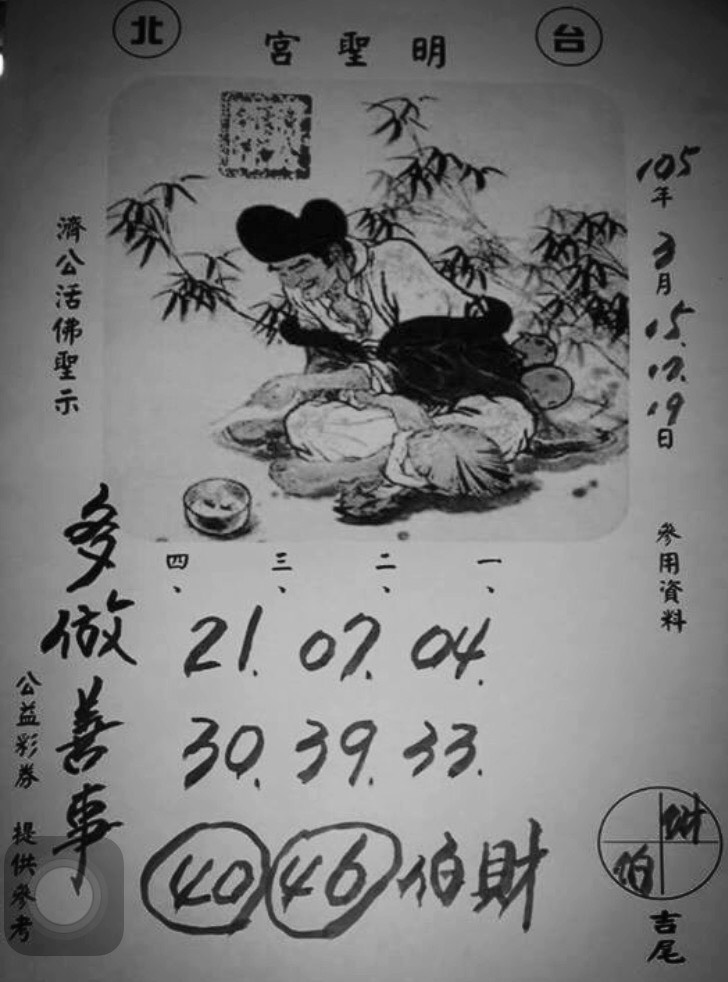 台北
明聖宮
105年3月15.17.19日
參用資料
一、二、三、四、
濟公活佛聖示
21. 07. 04.
30. 39. 33.
40 46 伯財
多做善事
公益彩券 提供參考
財
伯
吉尾